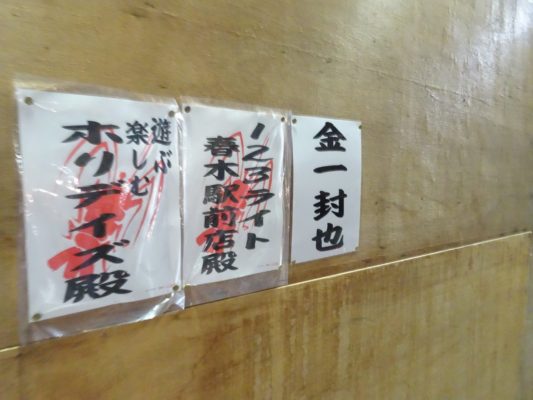 金一封也
123ライト
春木駅前店殿
遊ぶ
楽しむ
ホリデイズ殿